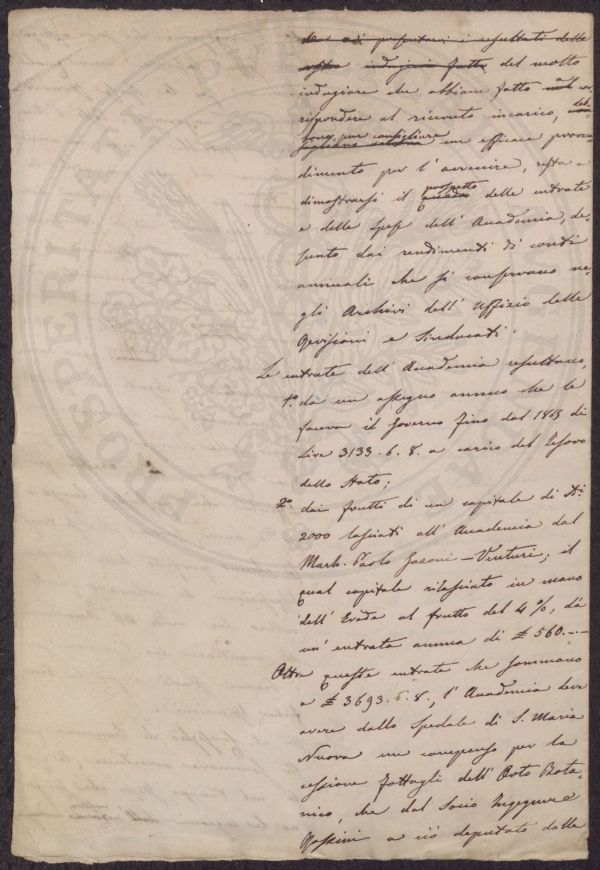 da noi presentarsi i resultati delle
nostre indagini fatte del molto
indugiare che abbiamo fatto a cor-
rispondere al ricevuto incarico,
pur consigliare un efficace provve-
dimento per l'avvenire, resta a
dimostrarsi il quadro prospetto delle entrate
e delle spese dell'Accademia, de-
sunto dai rendimenti di conti
annuali che si conservano ne-
gli Archivi dell'Uffizio delle
Revisioni e Sindacati.
Le entrate dell'Accademia resultano,
1.o da un assegno annuo che le
faceva il Governo fino dal 18 di
Lire 3133.6.8. a carico del Tesoro
dello Stato;
2.o dai frutti di un capitale di
2000 lasciati all'Accademia dal
March. Paolo Garzoni-Venturi; il
qual capitale rilasciato in mano
dell'Erede al frutto del 4%, dà
un'entrata annua di £ 560.--
Oltre queste entrate che sommano
a £ 3693.6.8., l'Accademia deve
avere dallo Spedale di S. Maria
Nuova un compenso per la
cessione fattagli dell'Orto Bota-
nico, che dal Socio Ingegnere
a ciò deputato dalle
PROSPERITATI PVBLICAE